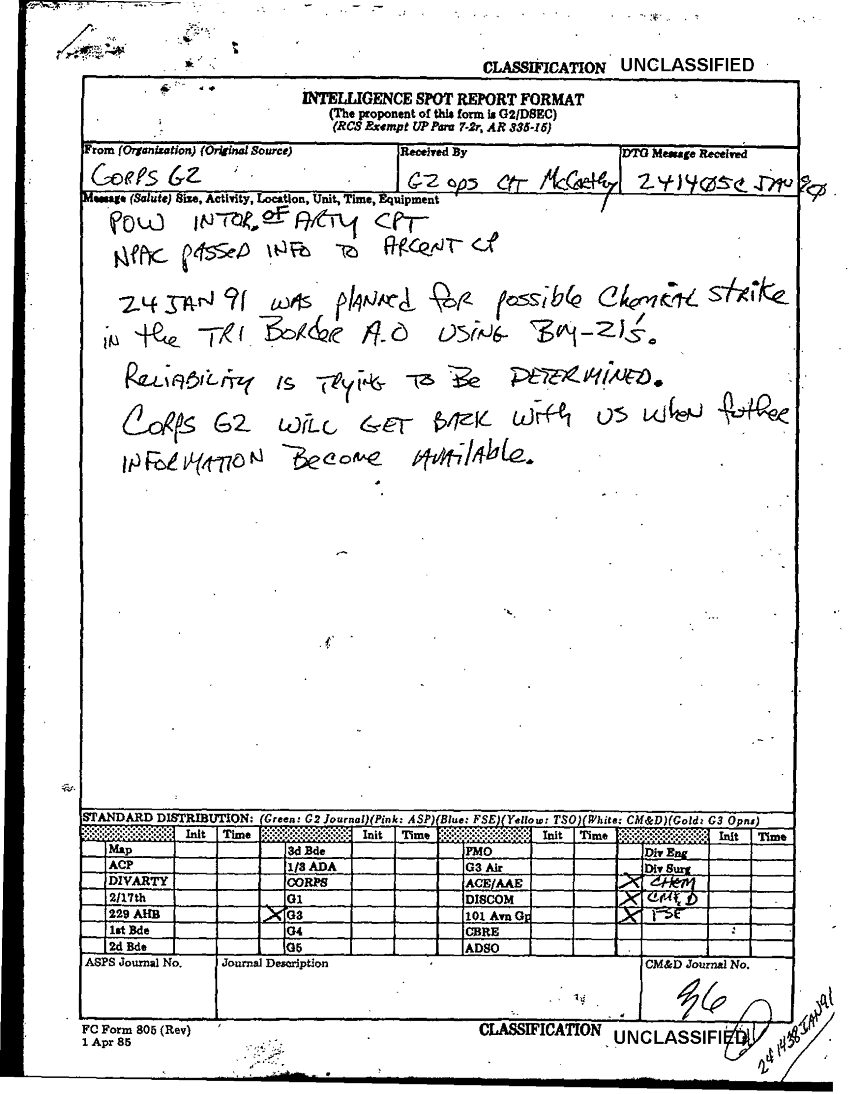 CLASSIFICATION UNCLASSIFIED
INTELLIGENCE SPOT REPORT FORMAT
(The proponent of this form is G2/DSEC)
(RCS Exempt UP Para 7-2r, AR 335-15)
From (Organization) (Original Source) Received By DTG Message Received
CORPS G2 G2 ops CPT McCarthy 241405C JAN
Message (Salute) Size, Activity, Location, Unit, Time, Equipment
POW INTOR. OF ARTY CPT
NPAC PASSED INFO TO ARCENT CP
24 JAN 91 WAS PLANNED for possible Chemical Strike
in the TRI Border A.O USING BM-21's.
RELIABILITY IS TRYING TO Be DETERMINED.
CORPS G2 WILL GET BACK With US When futher
INFORMATION Become AVAilAble.
STANDARD DISTRIBUTION: (Green: G2 Journal)(Pink: ASP)(Blue: FSE)(Yellow: TSO)(White: CM&D)(Gold: G3 Opns)
Init Time Init Time Init Time Init Time
Map 3d Bde PMO Div Eng
ACP 1/3 ADA G3 Air Div Surg
DIVARTY CORPS ACE/AAE X CHEM
2/17th G1 DISCOM X CM&D
229 AHB X G3 101 Avn Gp X FSE
1st Bde G4 CBRE
2d Bde G5 ADSO
ASPS Journal No. Journal Description CM&D Journal No.
36
FC Form 805 (Rev)
1 Apr 85
CLASSIFICATION UNCLASSIFIED
241438JAN91